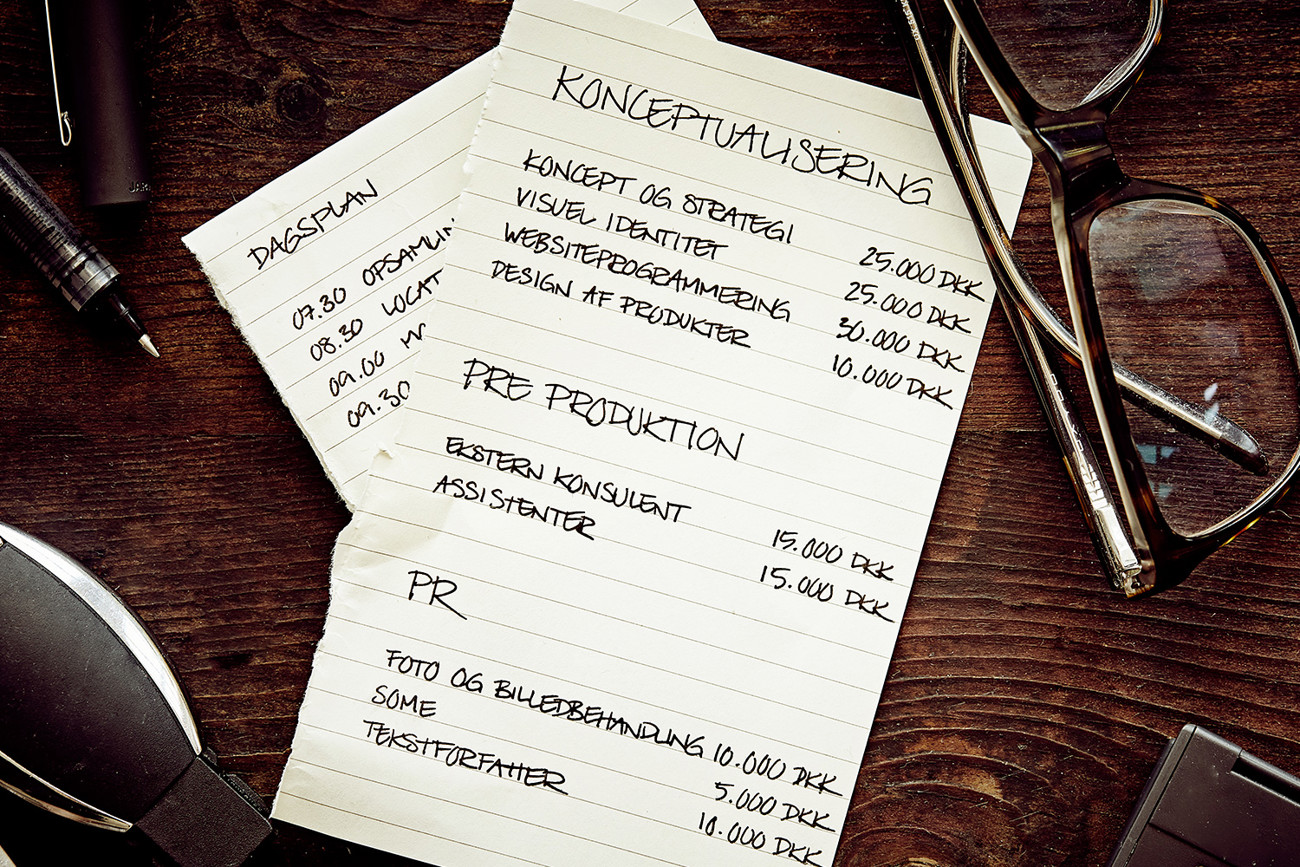 KONCEPTUALISERING
KONCEPT OG STRATEGI 25.000 DKK
VISUEL IDENTITET 25.000 DKK
WEBSITEPROGRAMMERING 30.000 DKK
DESIGN AF PRODUKTER 10.000 DKK
PRE PRODUKTION
EKSTERN KONSULENT 15.000 DKK
ASSISTENTER 15.000 DKK
PR
FOTO OG BILLEDBEHANDLING 10.000 DKK
SOME 5.000 DKK
TEKSTFORFATTER 10.000 DKK
DAGSPLAN
07.30 OPSAMLIN
08.30 LOCAT
09.00
09.30